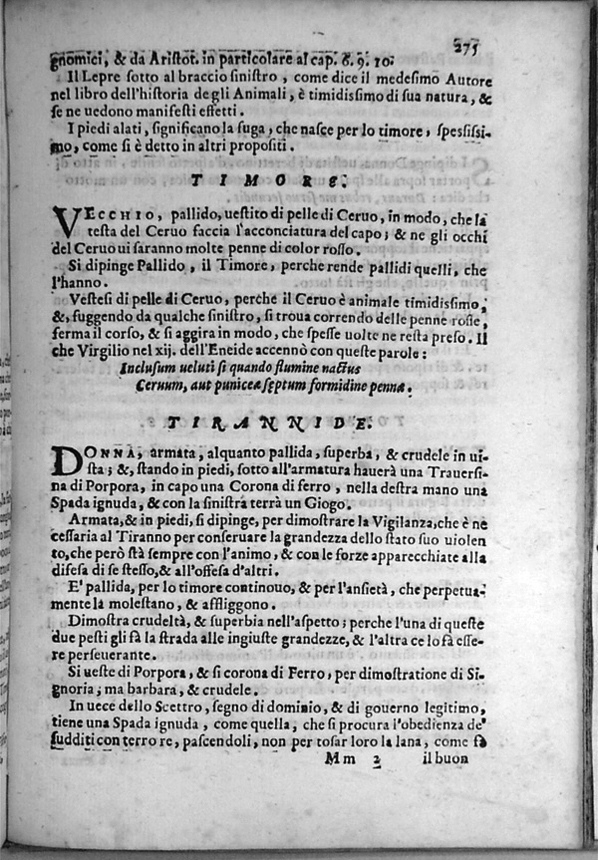 275
gnomici, & da Aristot. in particolare al cap. 8. 9. 10.
Il Lepre sotto al braccio sinistro, come dice il medesimo Autore
nel libro dell'historia degli Animali, è timidissimo di sua natura, &
se ne uedono manifesti effetti.
I piedi alati, significano la fuga, che nasce per lo timore, spessissi-
mo, come si è detto in altri propositi.
TIMORE.
VECCHIO, pallido, uestito di pelle di Ceruo, in modo, che la
testa del Ceruo faccia l'acconciatura del capo; & ne gli occhi
del Ceruo ui saranno molte penne di color rosso.
Si dipinge Pallido, il Timore, perche rende pallidi quelli, che
l'hanno.
Vestesi di pelle di Ceruo, perche il Ceruo è animale timidissimo,
&, fuggendo da qualche sinistro, si troua correndo delle penne rosse,
ferma il corso, & si aggira in modo, che spesse uolte ne resta preso. Il
che Virgilio nel xij. dell'Eneide accennò con queste parole:
Inclusum ueluti si quando flumine nactus
Ceruum, aut puniceæ septum formidine pennæ.
TIRANNIDE.
DONNA, armata, alquanto pallida, superba, & crudele in ui-
sta; &, stando in piedi, sotto all'armatura hauerà una Trauersi-
na di Porpora, in capo una Corona di ferro, nella destra mano una
Spada ignuda, & con la sinistra terrà un Giogo.
Armata, & in piedi, si dipinge, per dimostrare la Vigilanza, che è ne
cessaria al Tiranno per conseruare la grandezza dello stato suo uiolen
to, che però stà sempre con l'animo, & con le forze apparecchiate alla
difesa di se stesso, & all'offesa d'altri.
E' pallida, per lo timore continouo, & per l'ansietà, che perpetua-
mente la molestano, & affliggono.
Dimostra crudeltà, & superbia nell'aspetto; perche l'una di queste
due pesti gli fà la strada alle ingiuste grandezze, & l'altra ce lo fà esse-
re perseuerante.
Si ueste di Porpora, & si corona di Ferro, per dimostratione di Si-
gnoria; ma barbara, & crudele.
In uece dello Scettro, segno di dominio, & di gouerno legitimo,
tiene una Spada ignuda, come quella, che si procura l'obedienza de'
sudditi con terro re, pascendoli, non per tosar loro la lana, come fà
Mm 2 il buon